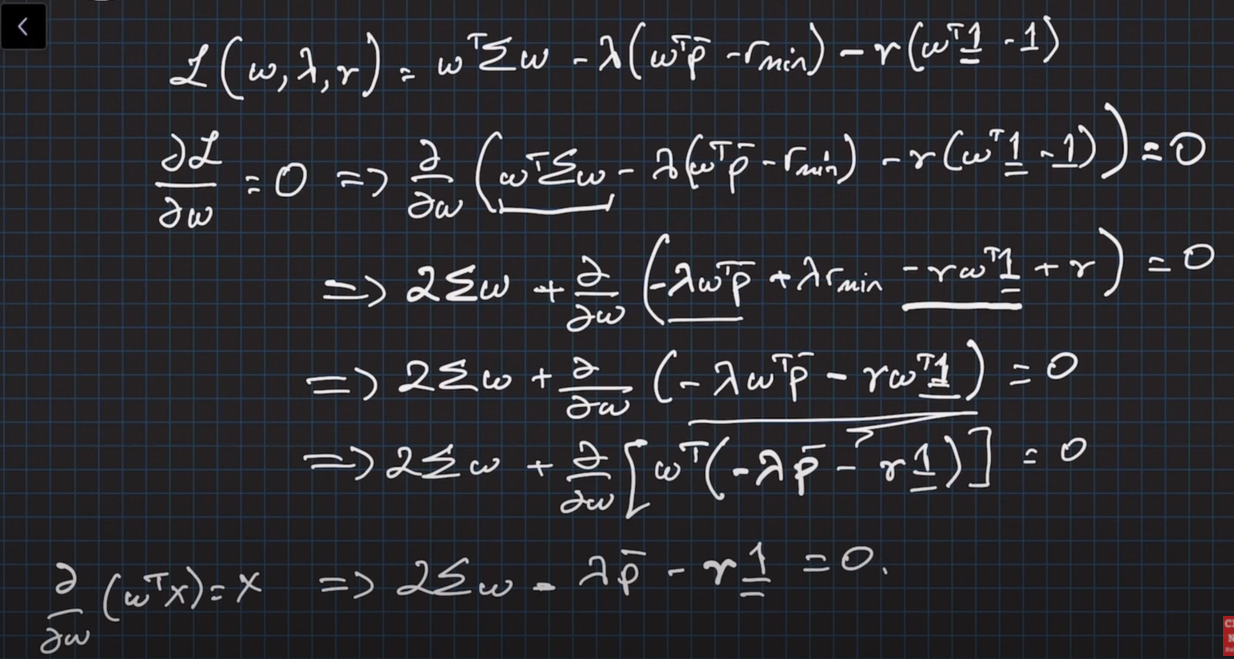 ℒ(ω, λ, r) = ωᵀΣω - λ(ωᵀp̄ - r_min) - r(ωᵀ1̲ - 1)
∂ℒ/∂ω = 0 => ∂/∂ω (ωᵀΣω - λ(ωᵀp̄ - r_min) - r(ωᵀ1̲ - 1)) = 0
=> 2Σω + ∂/∂ω (-λωᵀp̄ + λr_min - rωᵀ1̲ + r) = 0
=> 2Σω + ∂/∂ω (-λωᵀp̄ - rωᵀ1̲) = 0
=> 2Σω + ∂/∂ω [ωᵀ(-λp̄ - r1̲)] = 0
∂/∂ω (ωᵀx) = x => 2Σω - λp̄ - r1̲ = 0.